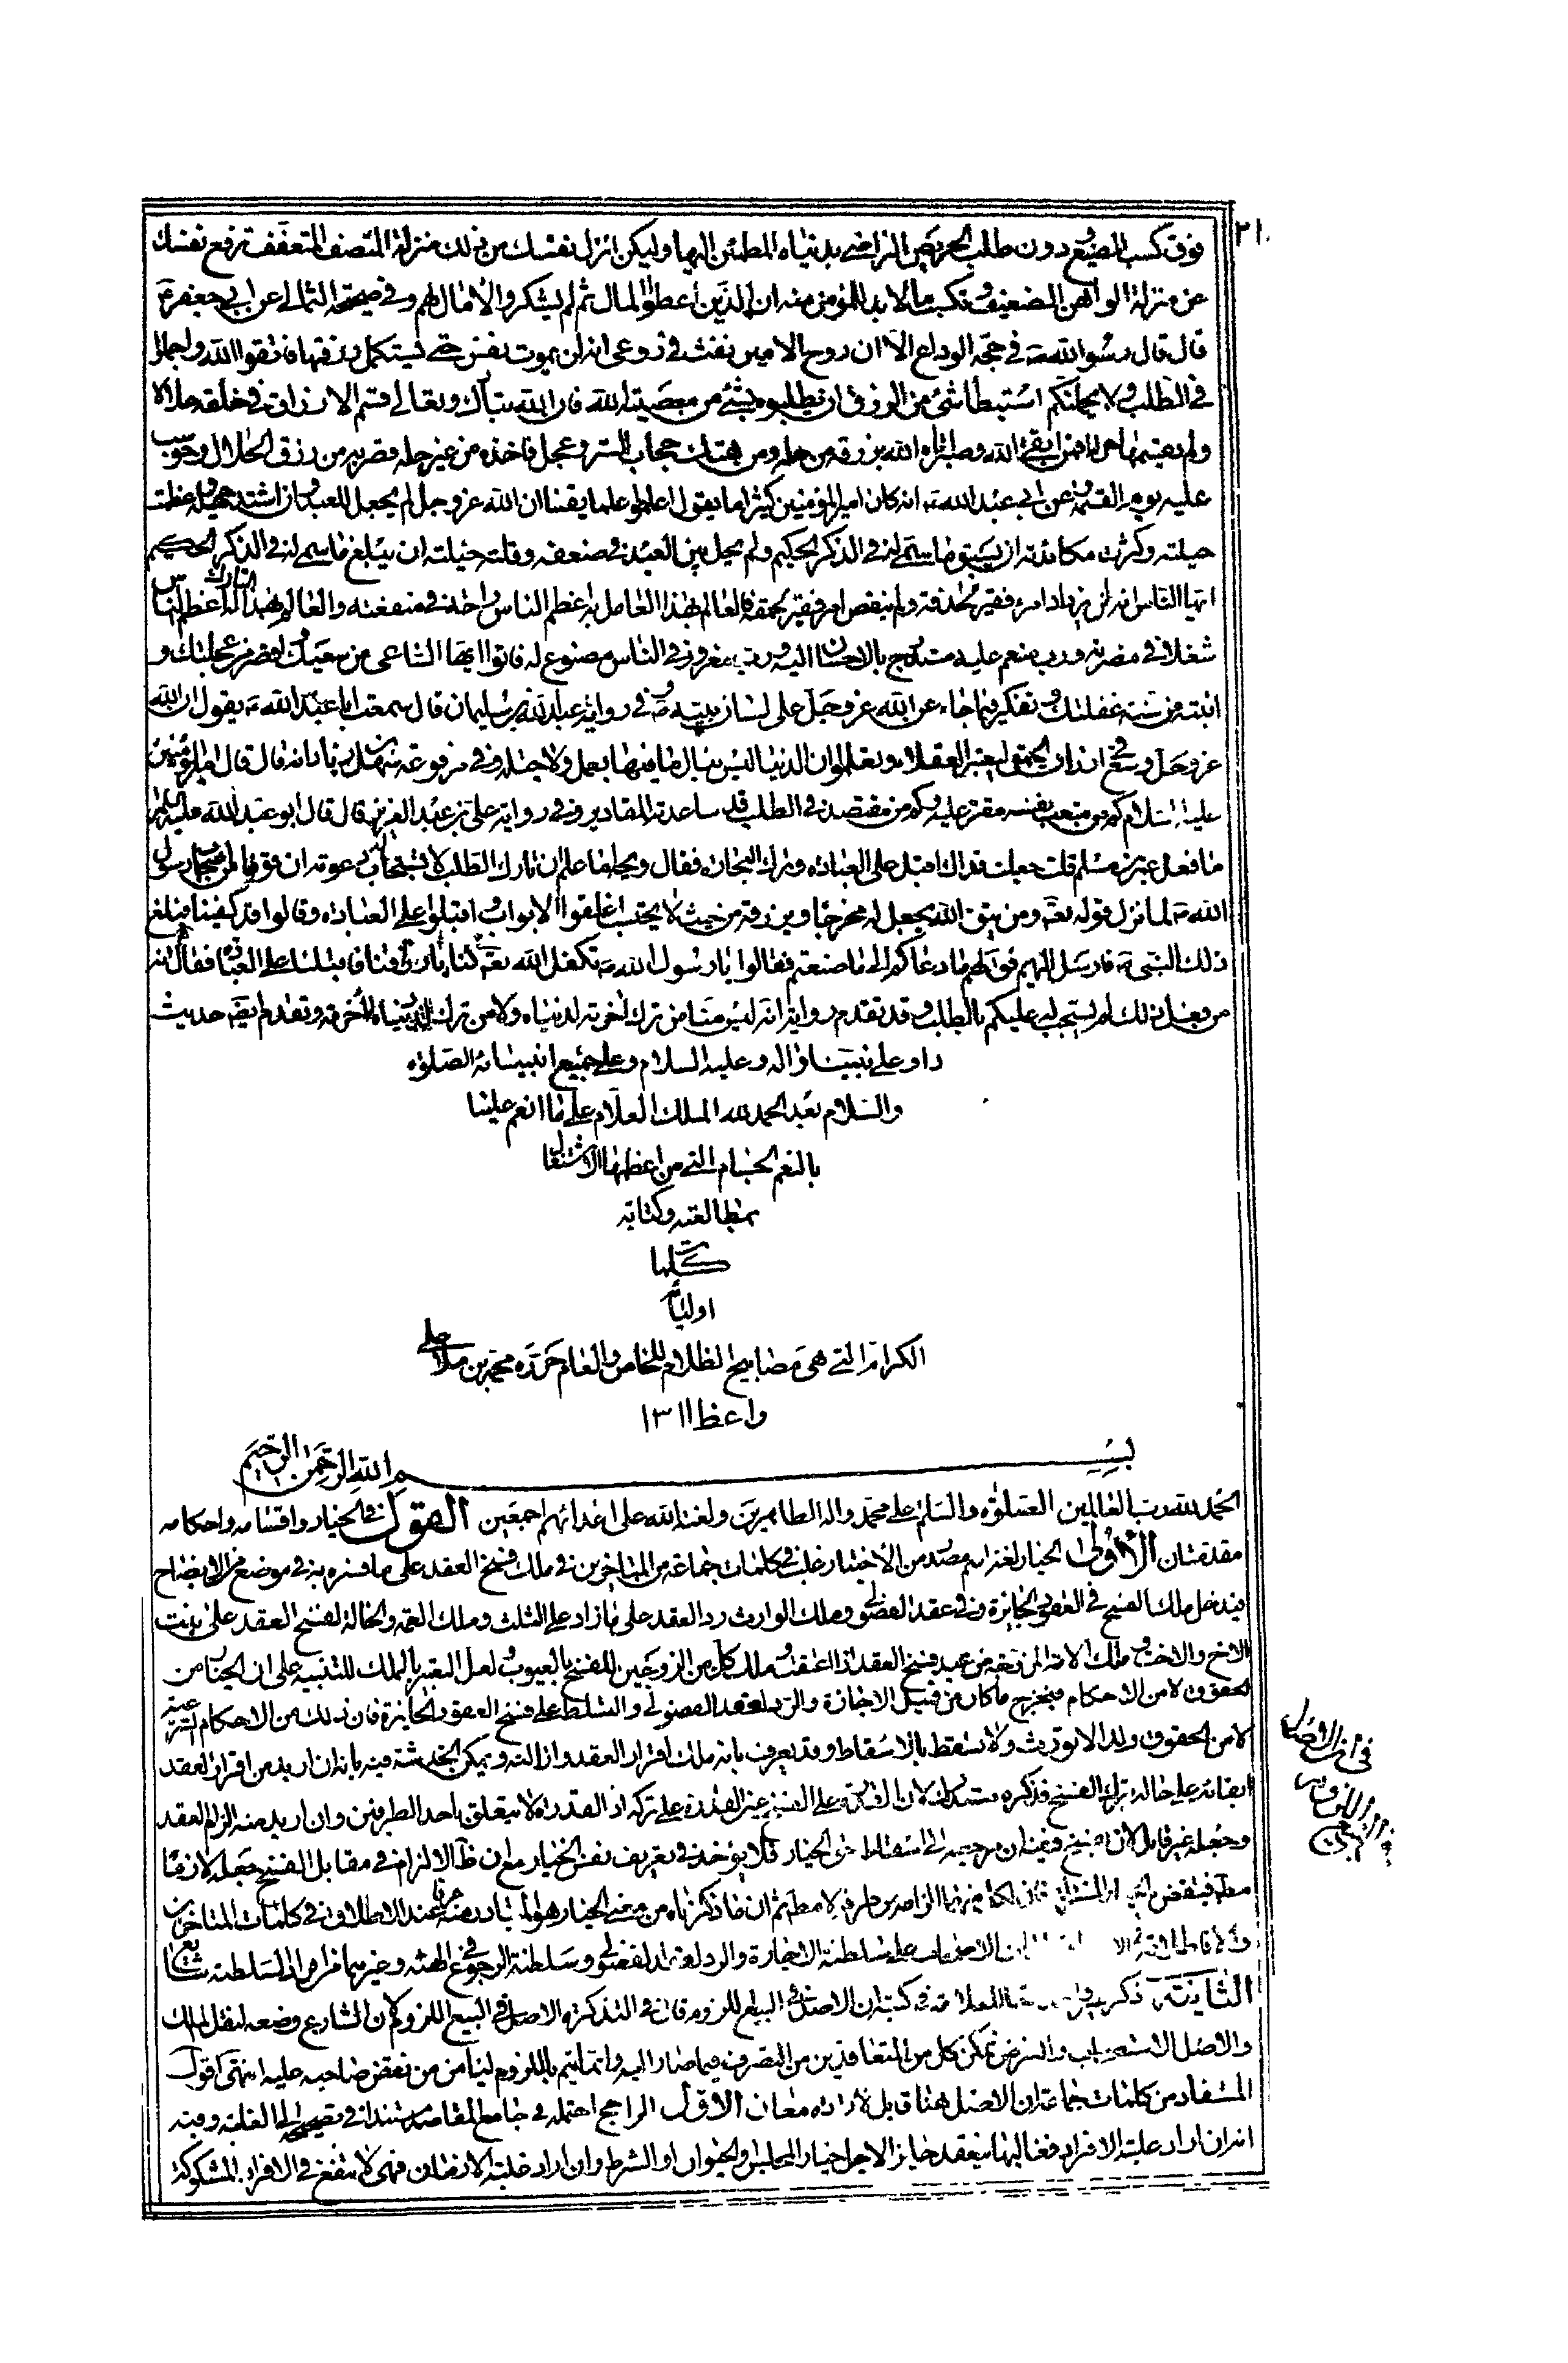 ٢١٠
فوق كسب المضيع و دون طلب الحريص الراضي بدنياه المطمئن اليها وليكن انزل نفسك من ذلك منزلة المتصف المتعفف ترفع نفسك
عن منزلة الواهن الضعيف و تكسب ما لا بد للمؤمن منه ان الذين اعطوا المال ثم لم يشكروا لا مال لهم و في صحيحة الثمالي عن ابي جعفر ع
قال قال رسول الله ص في حجة الوداع الا ان روح الامين نفث في روعي انه لن يموت نفس حتى تستكمل رزقها فاتقوا الله و اجملوا
في الطلب و لا يحملنكم استبطاء شئ من الرزق ان تطلبوه بشئ من معصية الله فان الله تبارك و تعالى قسم الارزاق في خلقه حلالا
ولم يقسمها حراما فمن اتقى الله و صبر اتاه الله برزقه من حله و من هتك حجاب الستر و عجل فاخذه من غير حله قص به من رزق الحلال و حوسب
عليه يوم القيمة و عن ابي عبد الله ع انه كان امير المؤمنين كثيرا ما يقول اعلموا علما يقينا ان الله عز و جل لم يجعل للعبد و ان اشتد جهده و عظمت
حيلته و كثرت مكائدته ان يسبق ما سمى له في الذكر الحكيم و لم يحل بين العبد في ضعفه و قلة حيلته ان يبلغ ما سمى له في الذكر الحكيم
ايها الناس انه لن يزداد امرء فقير بحذقه و لم ينقص امرء فقير بحمقه فالعالم لهذا العامل به اعظم الناس راحة في منفعته و العالم لهذا التارك له اعظم الناس
شغلا في مضرته و رب منعم عليه مستدرج بالاحسان اليه و رب مغرور في الناس مصنوع له فاتق ايها الساعي من سعيك و اقصر من عجلتك و
انتبه من سنة غفلتك و تفكر فيما جاء عن الله عز و جل على لسان نبيه ص و في رواية عبد الله بن سليمان قال سمعت ابا عبد الله ع يقول ان الله
عز و جل وسع في ارزاق الحمقى ليعتبر العقلاء و يعلموا ان الدنيا ليس ينال ما فيها بعمل و لا حيلة و في مرفوعة سهل بن زياد انه قال قال امير المؤمنين
عليه السلام كم من متعب نفسه مقتر عليه و كم من مقتصد في الطلب قد ساعدته المقادير و في رواية علي بن عبد العزيز قال قال ابو عبد الله عليه السلام
ما فعل عمر بن مسلم قلت جعلت فداك اقبل على العبادة و ترك التجارة فقال ويحه اما علم ان تارك الطلب لا يستجاب له دعوته ان قوما من اصحاب رسول
الله ص لما نزل قوله تع و من يتق الله يجعل له مخرجا و يرزقه من حيث لا يحتسب اغلقوا الابواب و اقبلوا على العبادة و قالوا قد كفينا فبلغ
ذلك النبي ص فارسل اليهم فق لهم ما دعاكم الى ما صنعتم فقالوا يا رسول الله ص تكفل الله تع لنا بارزاقنا فاقبلنا على العبادة فقال انه
من فعل ذلك لم يستجب له عليكم بالطلب و قد تقدم رواية انه ليس منا من ترك اخرته لدنياه و لا من ترك دنياه لاخرته و تقدم ايضا حديث
داود على نبينا و اله و عليه السلام و على جميع انبيائه الصلوة
والسلام بعد الحمد لله الملك العلام على ما انعم علينا
بالنعم الجسام التي من اعظمها الاشتغال
بمطالعة و كتابة
كلمات
اوليائه
الكرام التي هي مصابيح الظلام للخاص و العام حرره محمد بن ملا علي
واعظ ١٣١١
بسم الله الرحمن الرحيم
الحمد لله رب العالمين الصلوة والسلام على محمد واله الطاهرين ولعنة الله على اعدائهم اجمعين القول في الخيار و اقسامه و احكامه
مقدمتان الاولى الخيار لغة اسم مصدر من الاختيار غلب في كلمات جماعة من المتاخرين في ملك فسخ العقد على ما فسره به في موضع من الايضاح
فيدخل ملك الفسخ في العقود الجائزة و في عقد الفضولي و ملك الوارث رد العقد على ما زاد على الثلث و ملك العمة و الخالة لفسخ العقد على بنت
الاخ و الاخت و ملك الامة المزوجة من عبد فسخ العقد اذا اعتقت و ملك كل من الزوجين للفسخ بالعيوب و لعل التعبير بالملك للتنبيه على ان الخيار من
الحقوق لا من الاحكام فيخرج ما كان من قبيل الاجازة و الرد لعقد الفضولي و التسلط على فسخ العقود الجائزة فان ذلك من الاحكام الشرعية
لا من الحقوق و لذا لا تورث و لا تسقط بالاسقاط و قد يعرف بانه ملك اقرار العقد و ازالته و يمكن الخدشة فيه بانه ان اريد من اقرار العقد
ابقائه على حاله بترك الفسخ فذكره مستدرك لان القدرة على الفسخ عين القدرة على تركه اذ القدرة لا يتعلق باحد الطرفين و ان اريد منه الزام العقد
و جعله غير قابل لان يفسخ ففيه ان مرجعه الى اسقاط حق الخيار فلا يؤخذ في تعريف نفس الخيار مع ان ظ الالزام في مقابل الفسخ جعله لازما
مط فينتقض بالخيار المشترك فان لكل منهما الزامه من طرفه لا مط ثم ان ما ذكرناه من معنى الخيار هو المتبادر منه عرفا عند الاطلاق في كلمات المتاخرين
و الا فاطلاقه في الاخبار و كلمات الاصحاب على سلطنة الاجازة و الرد لعقد الفضولي و سلطنة الرجوع في الهبة و غيرهما من افراد السلطنة شايع
الثانية ذكر غير واحد تبعا للعلامة في كتبه ان الاصل في البيع اللزوم قال في التذكرة الاصل في البيع اللزوم لان الشارع وضعه لنقل الملك
والاصل الاستصحاب و الغرض تمكن كل من المتعاقدين من التصرف فيما صار اليه و انما يتم باللزوم ليامن من نقض صاحبه عليه انتهى اقول
المستفاد من كلمات جماعة ان الاصل هنا قابل لارادة معان الاول الراجح احتمله في جامع المقاصد مستندا في تصحيحه الى الغلبة و فيه
انه ان اراد غلبة الافراد فغالبها ينعقد جايزا لاجل خيار المجلس و الحيوان او الشرط و ان اراد غلبة الازمان فهي لا تنفع في الافراد المشكوكة
في ان الاصل
في البيع اللزوم